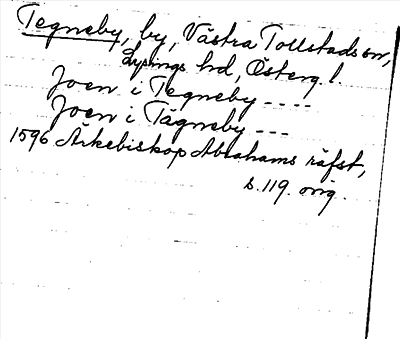 Tegneby, by, Västra Tollstads sn,
Lysings hd, Österg. l.
Joen i Tegneby ----
Joen i Tägneby ---
1596 Ärkebiskop Abrahams räfst,
s. 119. orig.